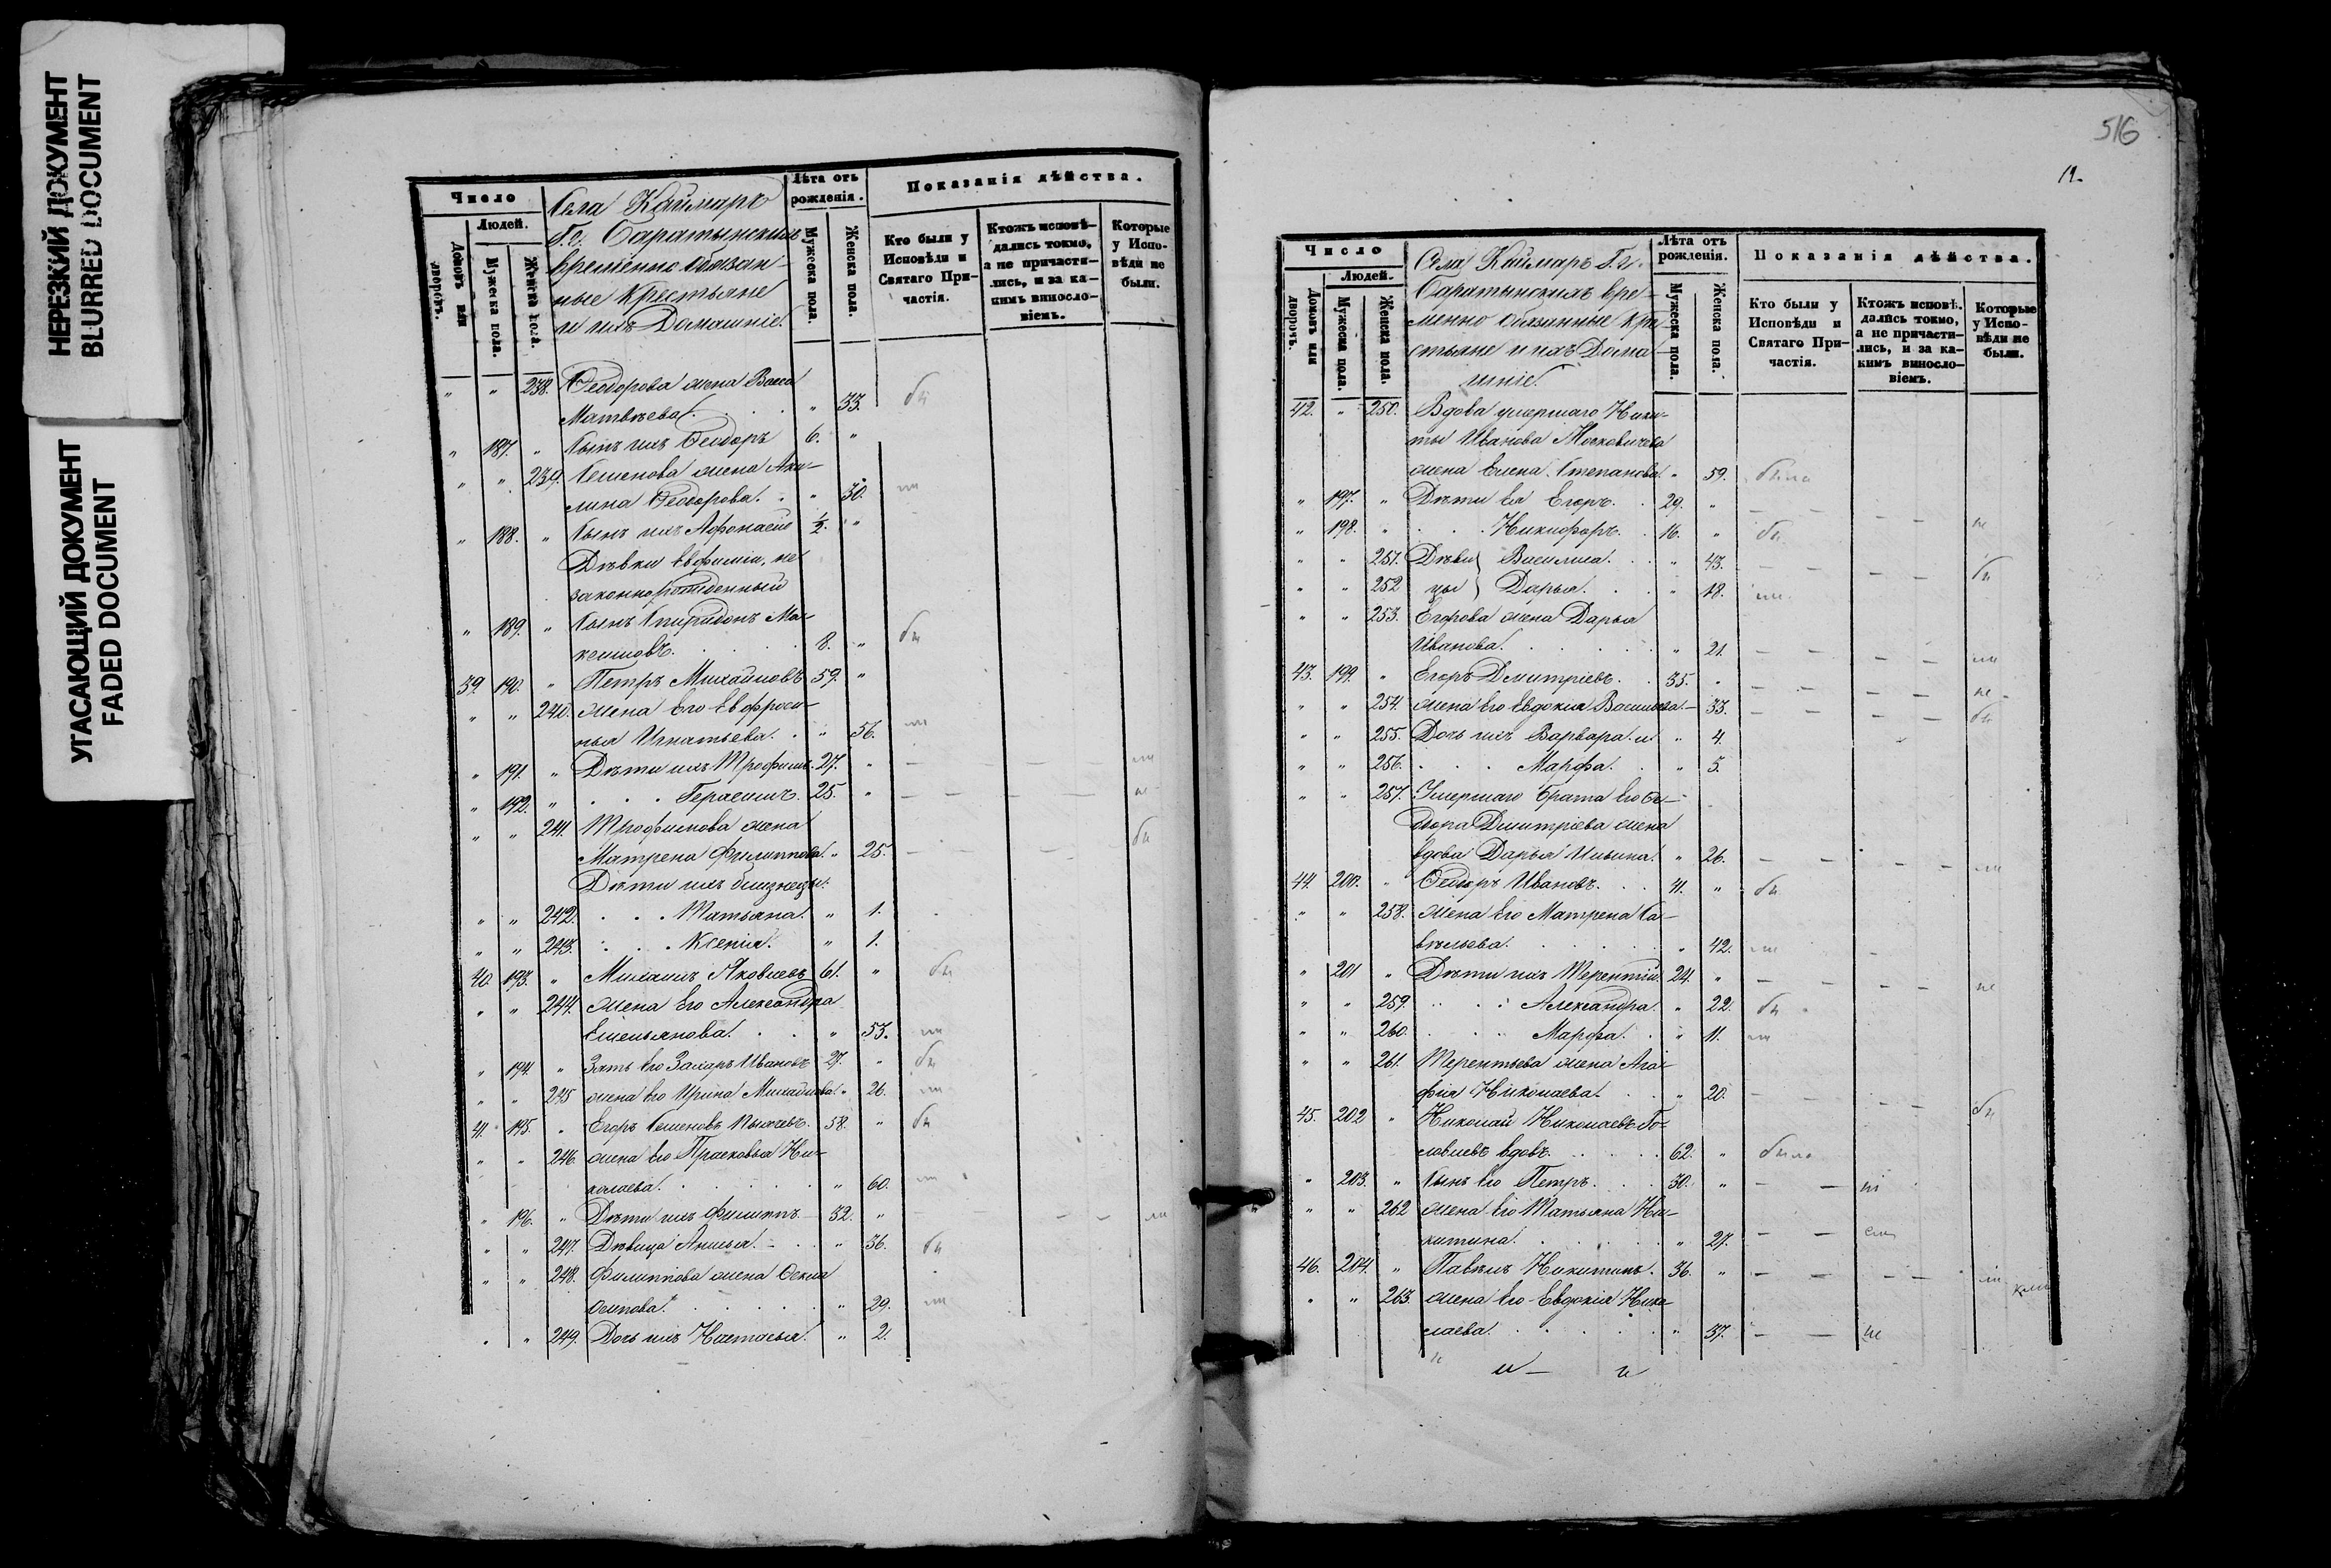 НЕРЕЗКИЙ ДОКУМЕНТ
BLURRED DOCUMENT
УГАСАЮЩИЙ ДОКУМЕНТ
FADED DOCUMENT
Число
Людей.
Домовъ или дворовъ.
Мужеска пола.
Женска пола.
Села Каймаръ
Г.г. Саратынскихъ
временно обязан-
ные Крестьяне
и ихъ Домашніе.
Лѣта отъ рожденія.
Мужеска пола.
Женска пола.
Показанія дѣйства.
Кто были у Исповѣди и Святаго При-частія.
Ктожъ исповѣ-дались токмо, а не причасти-лись, и за ка-кимъ винословіемъ.
Которые у Испо-вѣди не были.
" " 238. Ѳеодорова жена Васса
Матвѣева. " 33. бы
" 187. " Сынъ ихъ Ѳеодоръ 6. "
" " 239. Семенова жена Аку-
лина Ѳеодорова. " 30. ли
" 188. " Сынъ ихъ Афонасій ½. "
Дѣвки Евфиміи, не
законнорожденный
" 189. " Сынъ Спиридонъ Ма-
ксимовъ. 8. " бы
39. 190. " Петръ Михайловъ 59. "
" " 240. жена Его Евфроси-
нья Игнатьева. " 56. ли
" 191. " Дѣти ихъ Трофимъ. 27. " ли
" 192. " Герасимъ. 25. " не
" " 241. Трофимова жена
Матрена Филиппова. " 25. бы
Дѣти ихъ близнецы:
" " 242. Татьяна. " 1.
" " 243. Ксенія. " 1.
40. 193. " Михаилъ Яковлевъ 61. " бы
" " 244. жена Его Александра
Емельянова. " 53. ли
" 194. " Зять Его Захаръ Ивановъ 27. " бы
" " 245 жена Его Ирина Михайлова. " 26. ли
41. 195. " Егоръ Семеновъ 58. " бы
" " 246. жена Его Прасковья Ни-
колаева. " 60. ли
" 196. " Дѣти ихъ Филиппъ 32. " ли
" " 247. Дѣвица Анисья. " 36. бы
" " 248. Филиппова жена Ѳекла
Осипова. " 29. ли
" " 249. Дочь ихъ Настасья. " 2.
516
Число
Людей.
Домовъ или дворовъ.
Мужеска пола.
Женска пола.
Села Каймаръ Г.г.
Саратынскихъ вре-
менно обязанные Кре-
стьяне и ихъ Дома-
шніе.
Лѣта отъ рожденія.
Мужеска пола.
Женска пола.
Показанія дѣйства.
Кто были у Исповѣди и Святаго При-частія.
Ктожъ исповѣ. дались токмо, а не причасти-лись, и за ка-кимъ виносло-віемъ.
Которые у Испо-вѣди не были.
42. " 250. Вдова умершаго Ники-
ты Иванова
жена Елена Степанова. " 59. была
" 197. " Дѣти Ея Егоръ. 29. " не
" 198. " Никифоръ. 16. " бы
" " 251. Дѣви Василиса. " 43. бы
" " 252 цы Дарья. " 18. ли
" " 253. Егорова жена Дарья
Иванова. " 21. ли
43. 199. " Егоръ Дмитріевъ. 35. " не
" " 254. жена Его Евдокія Васильева. 33. бы
" " 255. Дочь ихъ Варвара. и " 4.
" " 256. Марфа. " 5.
" " 257. Умершаго брата Его Ѳе-
дора Дмитріева жена
вдова Дарья Ильина. " 26. ли
44. 200. " Ѳедоръ Ивановъ. 41. " бы
" " 258. жена Его Матрена Са-
вельева. " 42. ли
" 201 " Дѣти ихъ Терентій. 24. " не
" " 259. Александра. " 22. бы
" " 260. Марфа. " 11. ли
" " 261. Терентьева жена Ага-
фія Николаева. " 20. бы
45. 202 " Николай Николаевъ Го-
ловлевъ вдовъ. 62. " былъ
" 203. " Сынъ Его Петръ. 30. "
" " 262 жена Его Татьяна Ни-
китина. " 27.
46. 204. " Павелъ Никитинъ. 36. " ли
" " 263. жена Его Евдокія Нико-
лаева. " 37. не